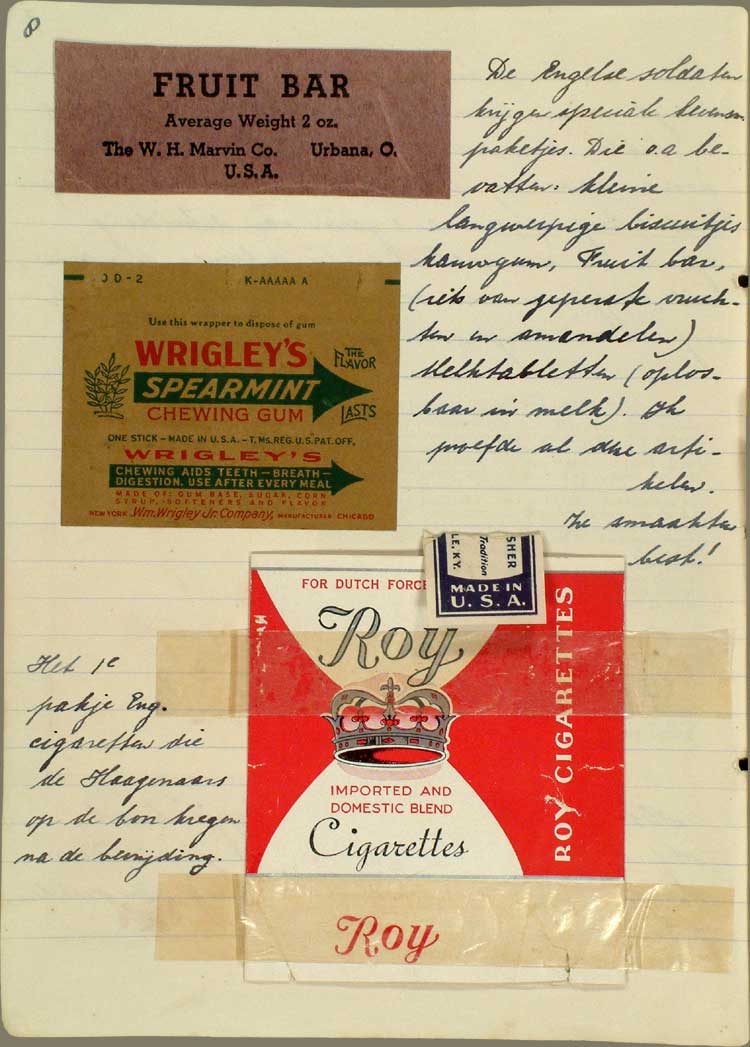 8
FRUIT BAR
Average Weight 2 oz.
The W. H. Marvin Co. Urbana, O.
U.S.A.
De Engelse soldaten
krijgen speciale levensm.
paketjes. Die o.a be-
vatten: kleine
langwerpige biscuitjes
kauwgum, Fruit bar,
(iets van geperste vruch-
ten en amandelen)
Melktabletten (oplos-
baar in melk). Ik
proefde al deze arti-
kelen.
Ze smaakten
best!
D-2 K-AAAAA A
Use this wrapper to dispose of gum
WRIGLEY'S
SPEARMINT
CHEWING GUM
THE
FLAVOR
LASTS
ONE STICK – MADE IN U.S.A. – T.Ms.REG.U.S.PAT.OFF.
WRIGLEY'S
CHEWING AIDS TEETH – BREATH –
DIGESTION. USE AFTER EVERY MEAL
MADE OF: GUM BASE, SUGAR, CORN
SYRUP, SOFTENERS AND FLAVOR
NEW YORK Wm. Wrigley Jr. Company, MANUFACTURER CHICAGO
SHER
Tradition
LE, KY.
MADE IN
U.S.A.
FOR DUTCH FORCE
Roy
IMPORTED AND
DOMESTIC BLEND
Cigarettes
Roy
ROY CIGARETTES
Het 1e
pakje Eng.
cigaretten die
de Hagenaars
op de bon kregen
na de bevrijding.